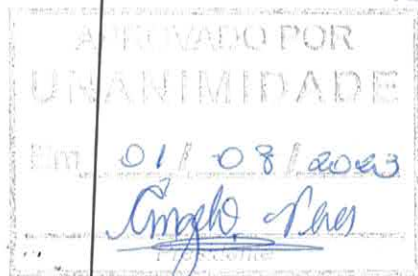 APROVADO POR
UNANIMIDADE
Em 01 / 08 / 2023
Presidente